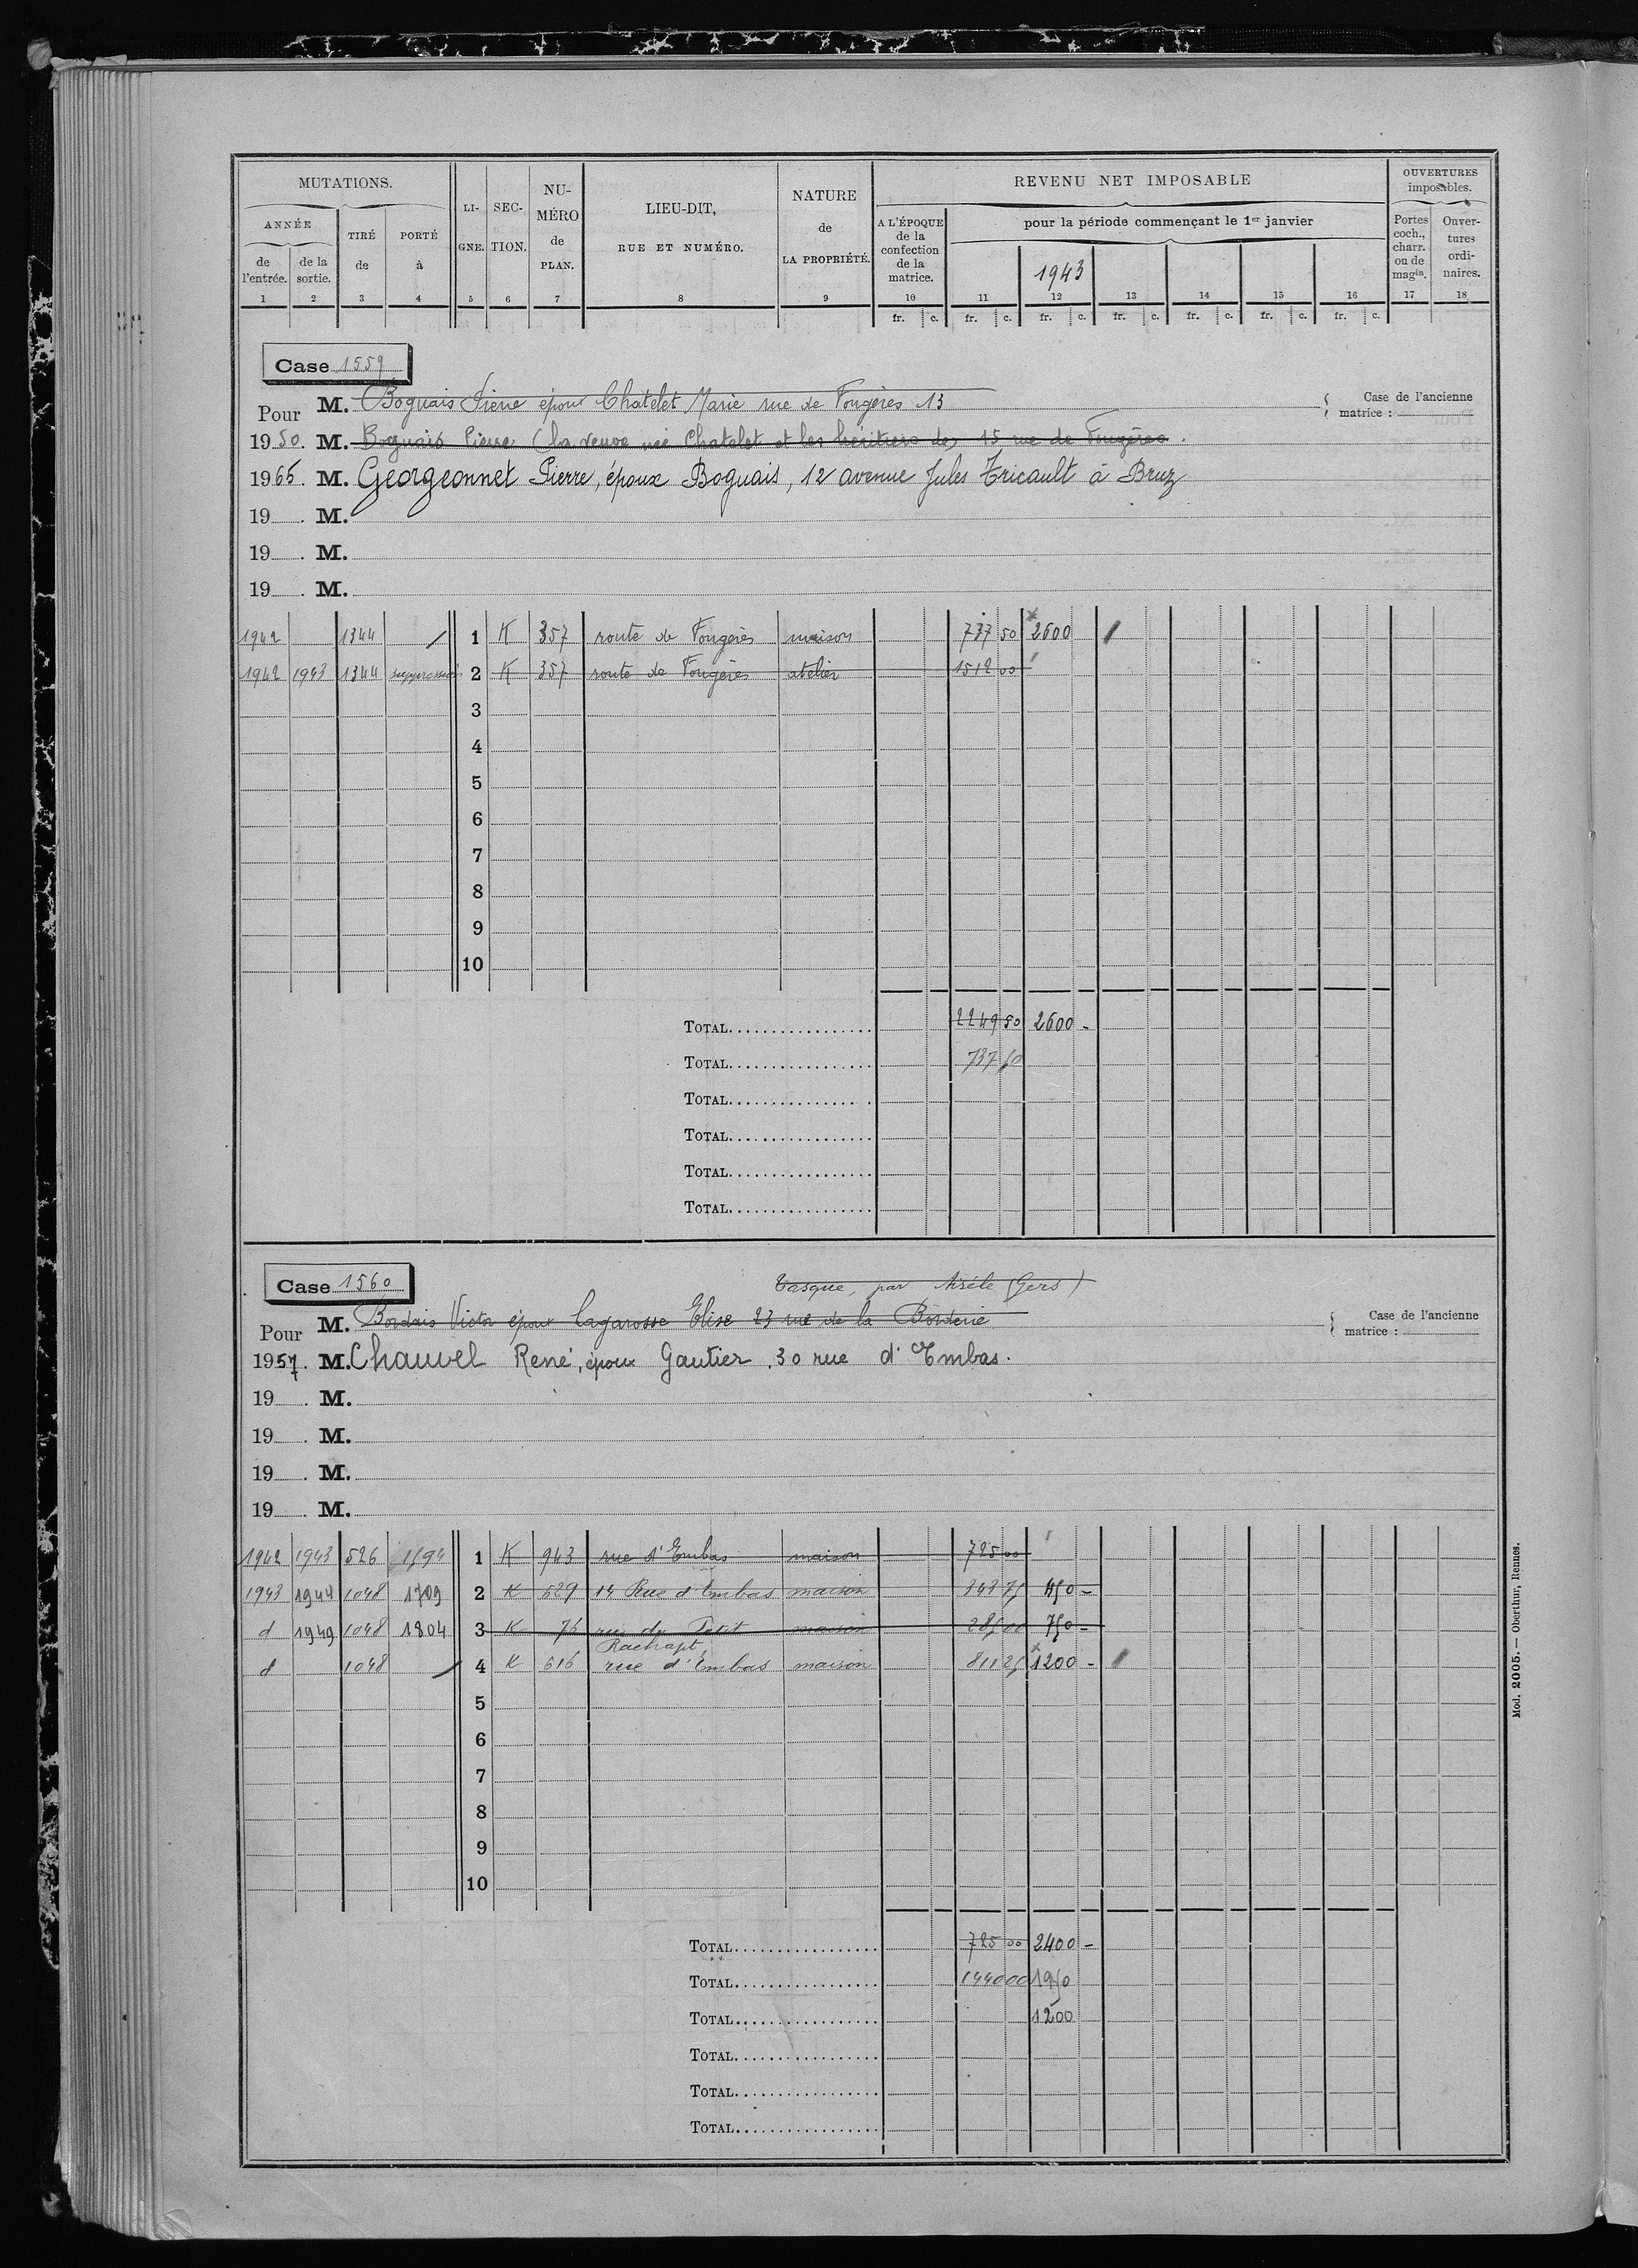 MUTATIONS.
ANNÉE
de l'entrée.
de la sortie.
TIRÉ de
PORTÉ à
LI-GNE.
SEC-TION.
NU-MÉRO de PLAN.
LIEU-DIT, RUE ET NUMÉRO.
NATURE de LA PROPRIÉTÉ.
REVENU NET IMPOSABLE
A L'ÉPOQUE de la confection de la matrice.
pour la période commençant le 1er janvier
1943
OUVERTURES imposables.
Portes coch., charr. ou de magin.
Ouver-tures ordi-naires.
1 2 3 4 5 6 7 8 9 10 11 12 13 14 15 16 17 18
fr. c. fr. c. fr. c. fr. c. fr. c. fr. c. fr. c.
Case 1559
Pour M. Boguais Pierre époux Chatelet Marie rue de Fougères 13
Case de l'ancienne matrice :
1950. M. Boguais Pierre (la veuve née Chatelet et les héritiers de) 15 rue de Fougères.
1965. M. Georgeonnet Pierre, époux Boguais, 12 avenue Jules Tricault à Bruz
19 . M.
19 . M.
19 . M.
1942 1344 / 1 K 357 route de Fougères maison 737 50 2600
1942 1943 1344 suppression 2 K 357 route de Fougères atelier 1512 00
3
4
5
6
7
8
9
10
TOTAL 2249 50 2600 -
TOTAL 737 50
TOTAL
TOTAL
TOTAL
TOTAL
Case 1560
Tasque, par (Gers)
Pour M. Bordais Victor époux Lagarosse Elise 23 rue de la Borderie
Case de l'ancienne matrice :
1957. M. Chauvel René, époux Gautier, 30 rue d'Embas.
19 . M.
19 . M.
19 . M.
19 . M.
1942 1943 526 1594 1 K 943 rue d'Embas maison 725 00
1943 1944 1048 1709 2 K 529 14 Rue d'Embas maison 343 75 450 -
d 1949 1048 1804 3 K 75 rue du Petit Rachapt maison 285 00 750 -
d 1048 / 4 K 616 rue d'Embas maison 811 25 1200 -
5
6
7
8
9
10
TOTAL 725 00 2400 -
TOTAL 1440 00 1950
TOTAL 1200
TOTAL
TOTAL
TOTAL
Mod. 2005. — Oberthur, Rennes.